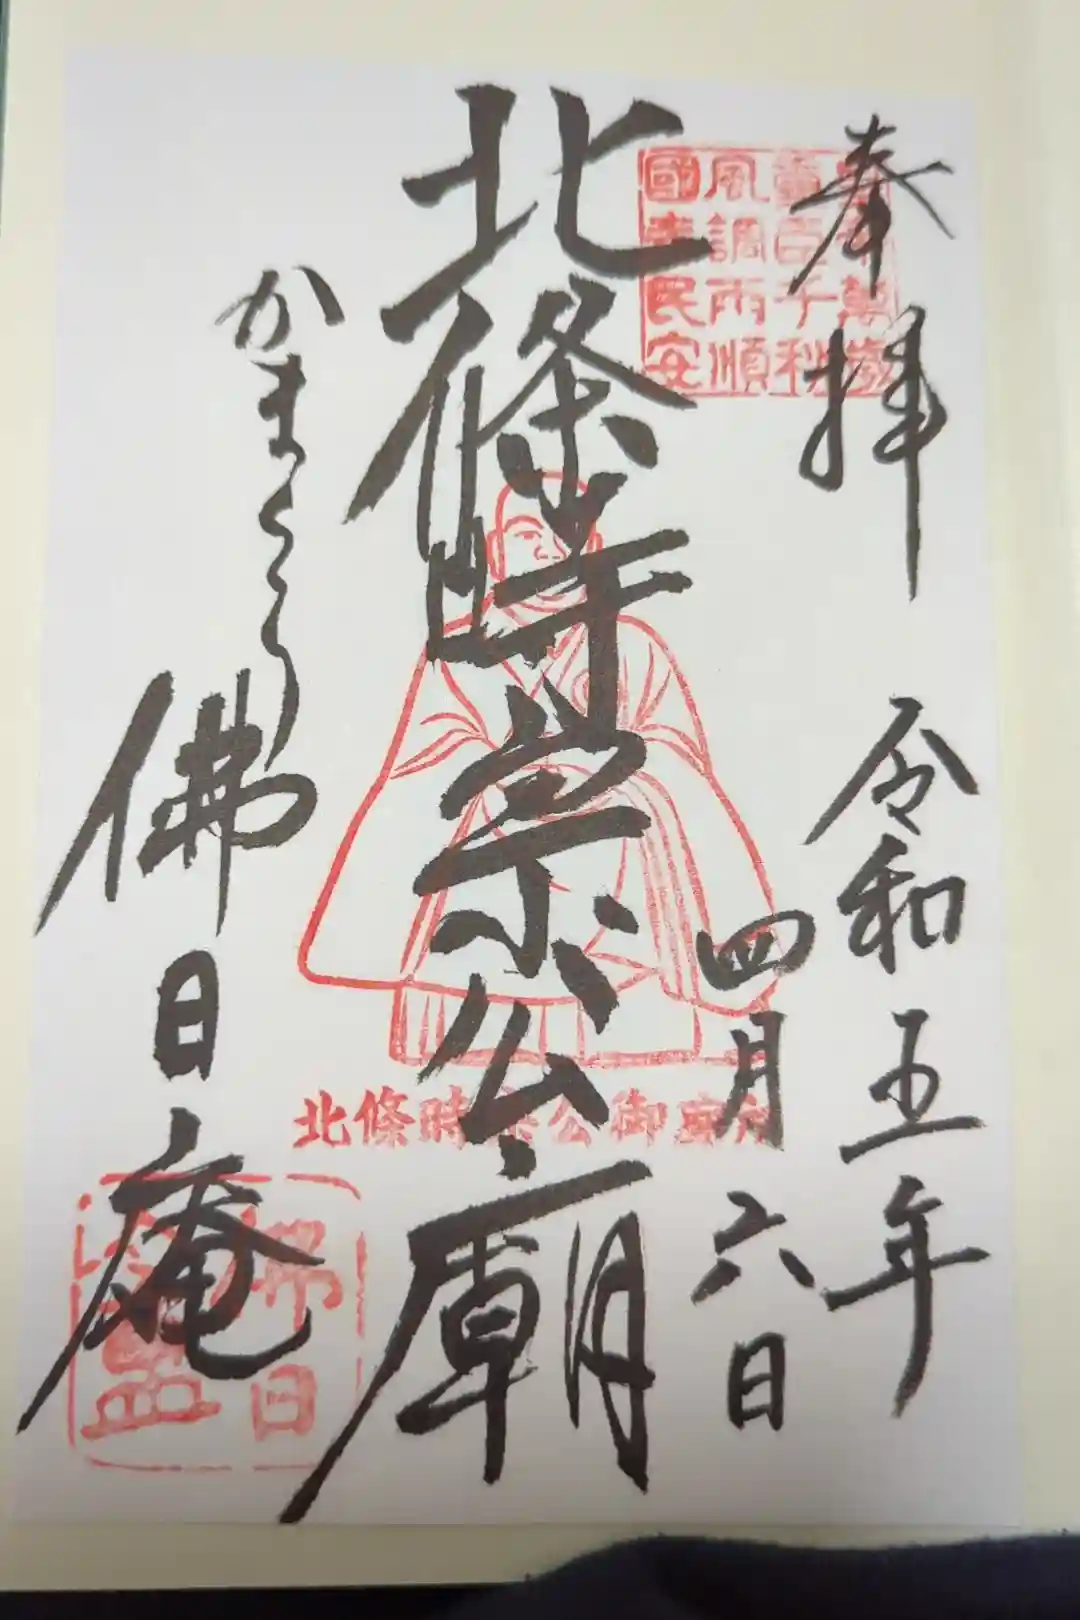 奉拝
令和五年
四月六日
風調雨順
國泰民安
北條時宗公廟
北條時宗公御廟所
かまくら
佛日庵